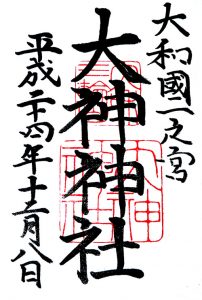 大和國一之宮
大神神社
平成二十四年十二月八日